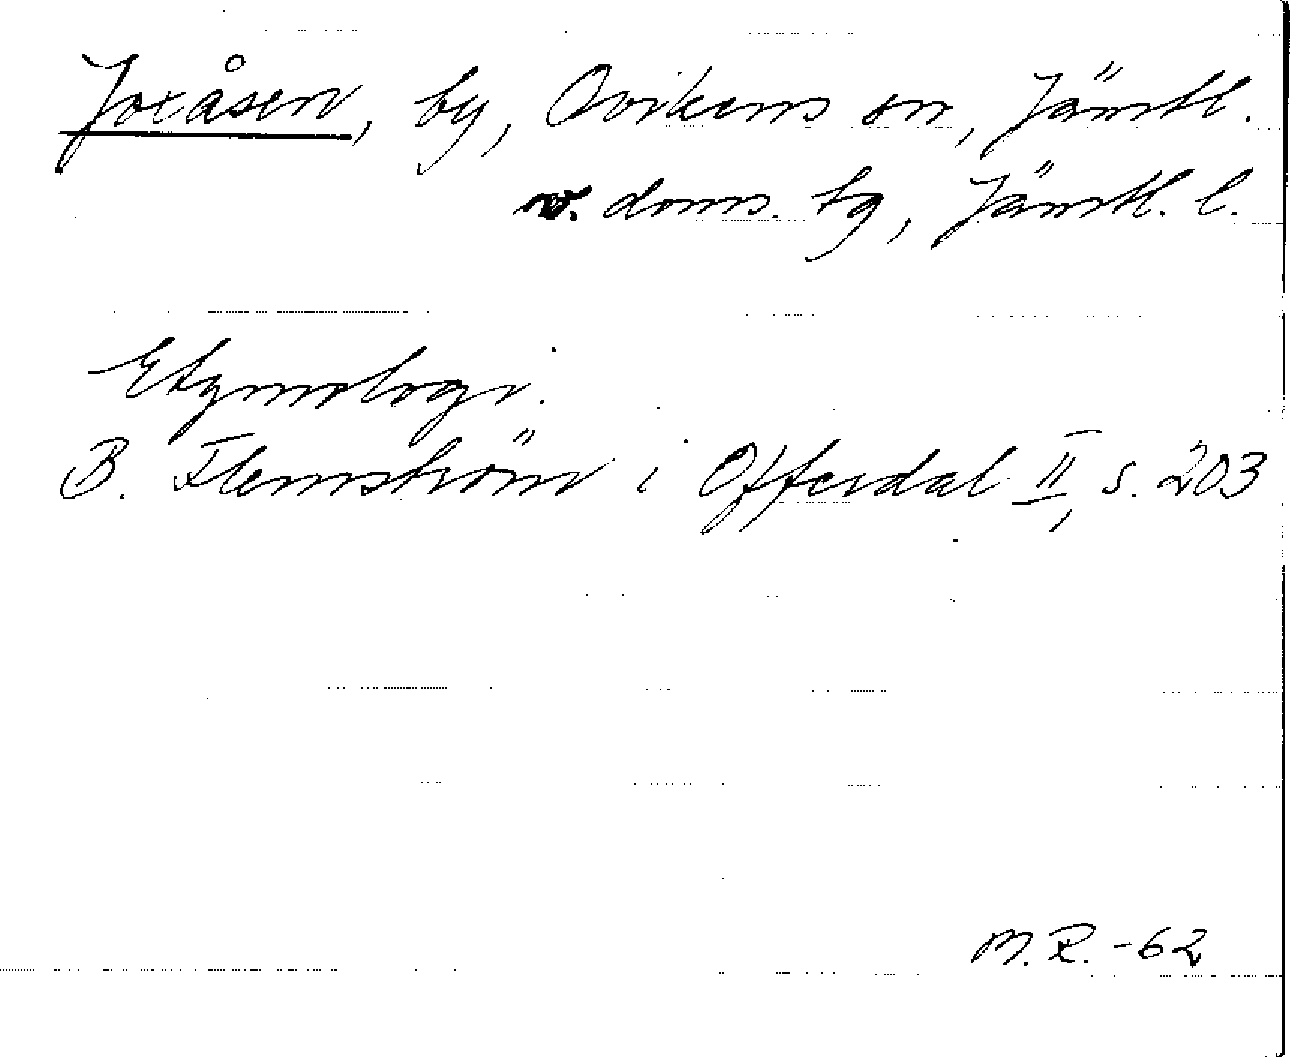 Joxåsen, by, Ovikens sn, Jämtl.
v. doms. tg, Jämtl. l.
Etymologi.
B. Flemström i Offerdal II, s. 203
M.R. -62